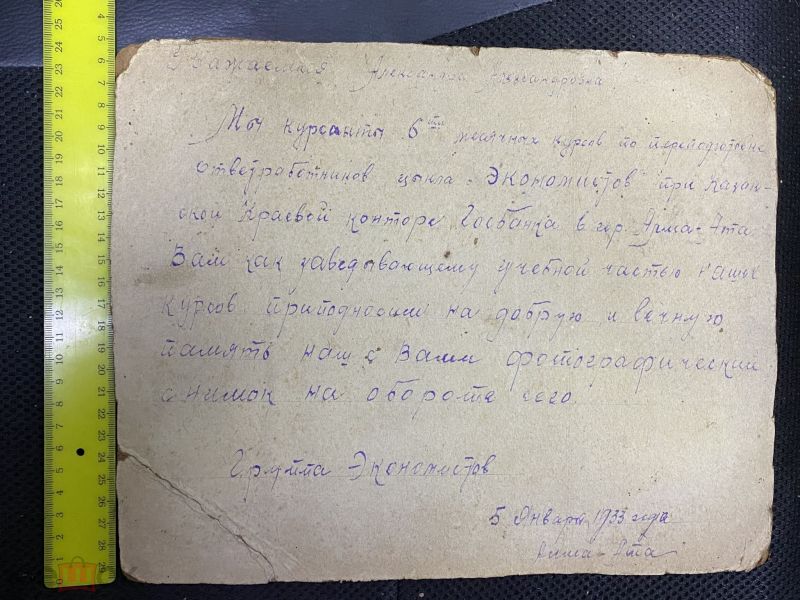 Уважаемая Александра Александровна
Мы курсанты 6ти месячных курсов по переподготовке
ответработников цикла "Экономистов" при Казак-
ской Краевой конторе Госбанка в гор. Алма-Ата
Вам как заведывающему учебной частью наших
курсов приподносим на добрую и вечную
память наш с Вами фотографический
снимок на обороте сего.
Группа Экономистов
5 Января 1933 года
Алма-Ата